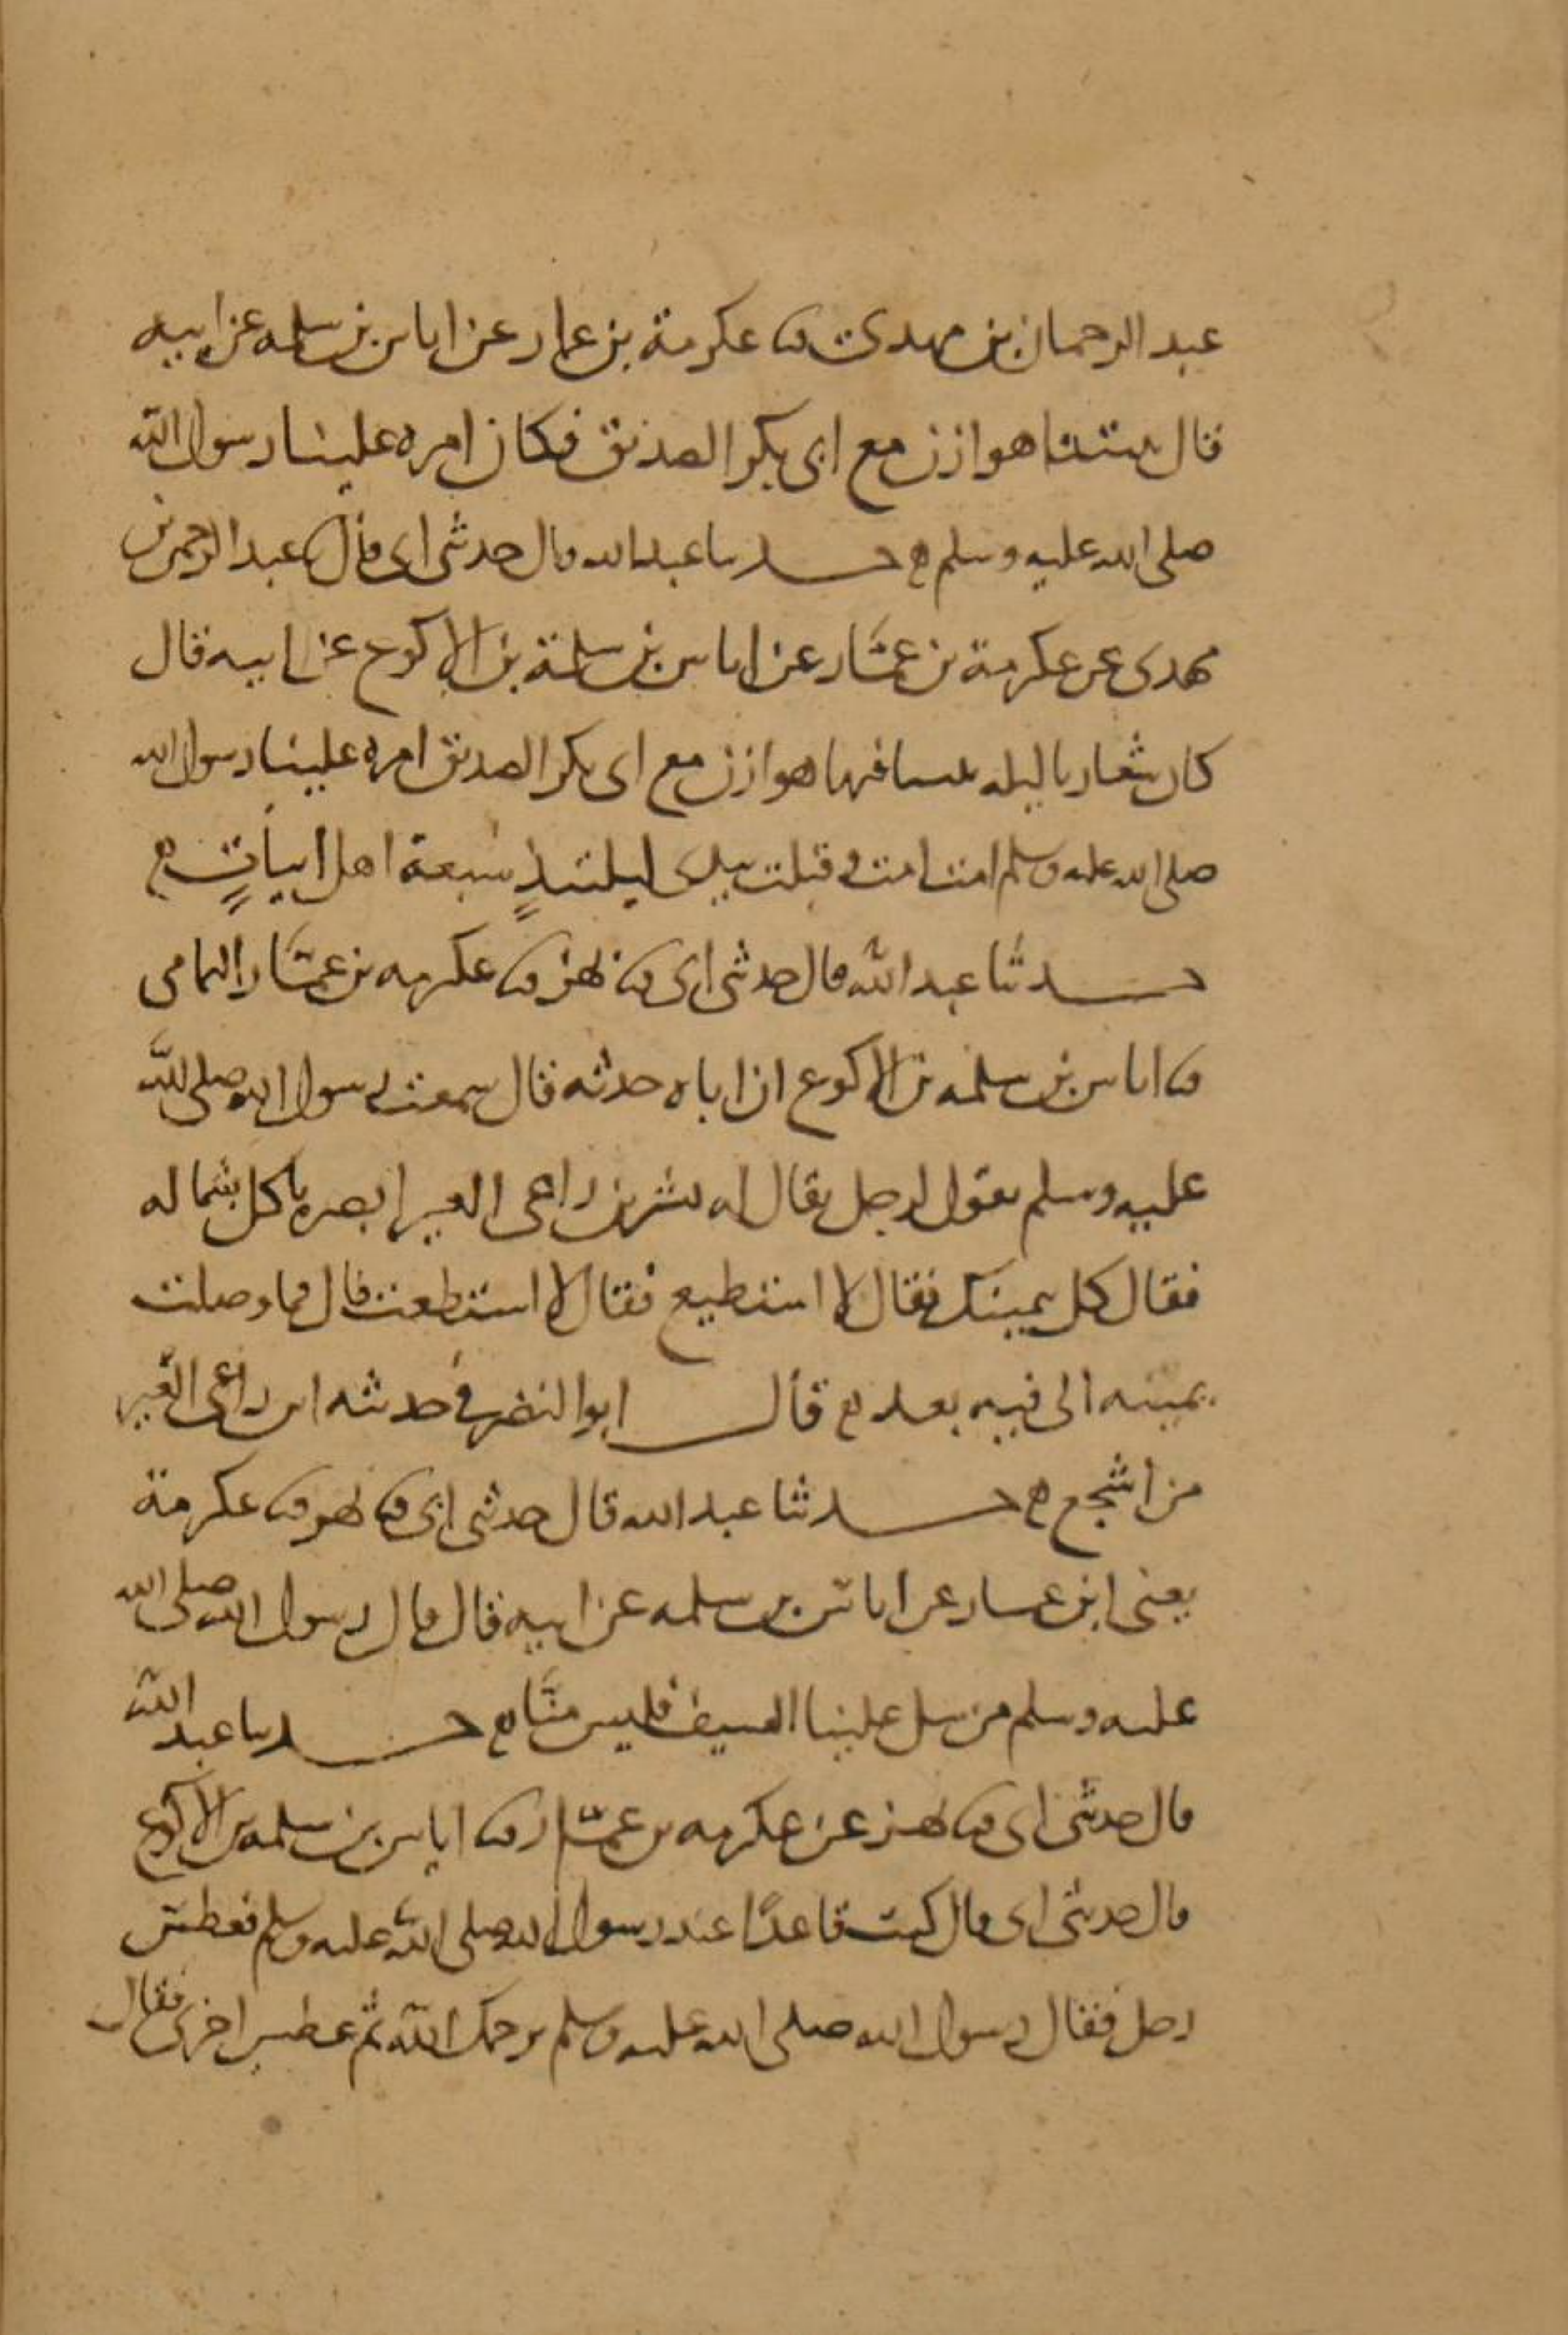 عبد الرحمان بن مهدى ثنا عكرمة بن عمار عن اياس بن سلمه عن ابيه
قال بيتنا هوازن مع ابى بكر الصديق فكان امره علينا رسول الله
صلى الله عليه وسلم حدثنا عبد الله قال حدثنى ابى قال عبد الرحمن بن
مهدى عن عكرمة بن عمار عن اياس بن سلمة بن الاكوع عن ابيه قال
كان شعارنا ليله بيتنا فيها هوازن مع ابى بكر الصديق امره علينا رسول الله
صلى الله عليه وسلم امت امت وقتلت بيدى ليلتئذٍ سبعة اهل ابياتٍ
حدثنا عبد الله قال حدثنى ابى ثنا بهز ثنا عكرمه بن عمار اليمامى
ثنا اياس بن سلمه بن الاكوع ان اباه حدثه قال سمعت رسول الله صلى الله
عليه وسلم يقول لرجل يقال له بشر بن راعى العير ابصره ياكل بشماله
فقال كل بيمينك فقال لا استطيع فقال لا استطعت قال فما وصلت
يمينه الى فيه بعد قال ابو النضر فى حدثه ابن راعى العير
من اشجع حدثنا عبد الله قال حدثنى ابى ثنا بهز ثنا عكرمة
يعنى ابن عمار عن اياس بن سلمه عن ابيه قال قال رسول الله صلى الله
عليه وسلم من سل علينا السيف فليس منّا حدثنا عبد الله
قال حدثنى ابى ثنا بهز عن عكرمه بن عمار ثنا اياس بن سلمه بن الاكوع
قال حدثنى ابى قال كنت قاعدًا عند رسول الله صلى الله عليه وسلم فعطس
رجل فقال رسول الله صلى الله عليه وسلم يرحمك الله ثم عطس اخرى فقال